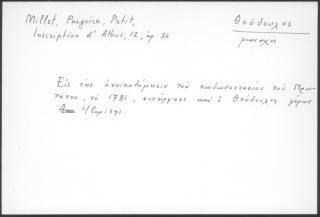 Millet, Pargoire, Petit,
Inscription d'Athos, 12, ἀρ. 36
Θεόδουλος
μοναχός
Εἰς τὴν ἀνοικοδόμησιν τοῦ κωδωνοστασίου τοῦ Πρω-
τάτου, τὸ 1781, συνήργησε καὶ ὁ Θεόδουλος γέρων